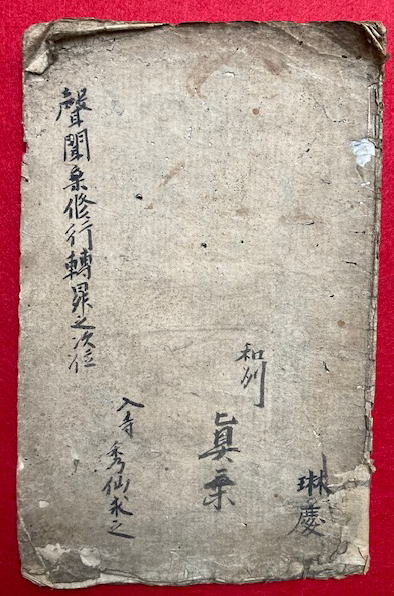 琳慶
和州
眞乗
入寺 秀仙求之
聲聞乗修行轉昇之次位